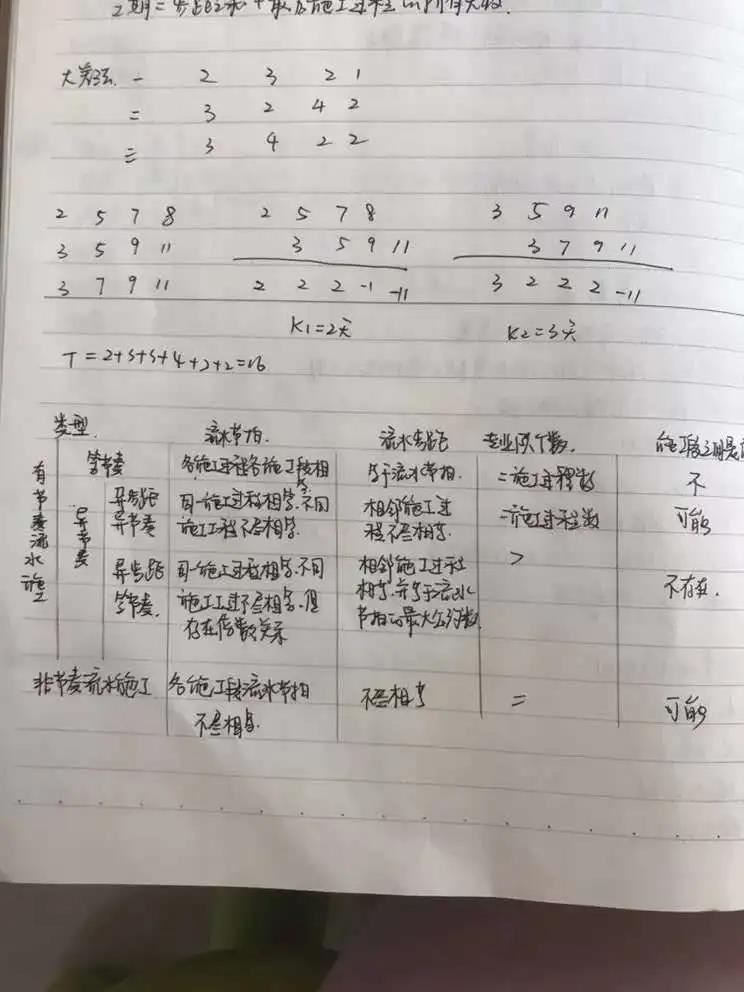 工期=步距之和+最后施工过程的所有天数.
大差法. 一 2 3 2 1
二 3 2 4 2
三 3 4 2 2
2 5 7 8 2 5 7 8 3 5 9 11
3 5 9 11 3 5 9 11 3 7 9 11
3 7 9 11 2 2 2 -1 -11 3 2 2 2 -11
K1=2天 K2=3天
T=2+3+3+4+2+2=16
类型. 流水节拍. 流水步距 专业队个数.
有节奏流水施工
等节奏 各施工过程各施工段相等 等于流水节拍. =施工过程数 不
异节奏
异步距 同一施工过程相等.不同 相邻施工过 =施工过程数 可能
异节奏 施工工程不尽相等. 程不尽相等.
异步距 同一施工过程相等.不同 相邻施工过程 >
等节奏. 施工工过不尽相等.但 相等.并等于流水 不存在.
存在倍数关系 节拍的最大公约数
非节奏流水施工 各施工段流水节拍 不尽相等 = 可能
不尽相等.